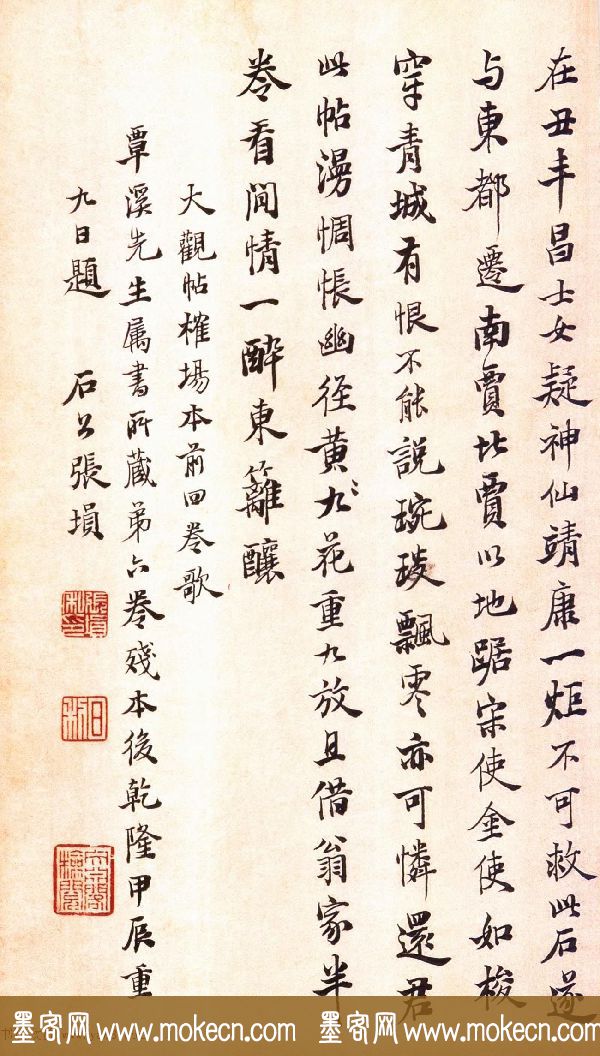 在丑丰昌士女疑神仙靖康一炬不可救此石遂
与東都遷南賈北賈以地踞宋使金使如梭
穿青城有恨不能說琬琰飄零亦可憐還君
此帖漫惆悵幽径黄九花重九放且借翁家半
卷看間情一醉東籬釀
大觀帖榷場本前四卷歌
覃溪先生属書所藏弟六卷殘本後乾隆甲辰重
九日題 石公張塤
張塤私印
墨客网 www.mokecn.com 墨客网 www.mokecn.com